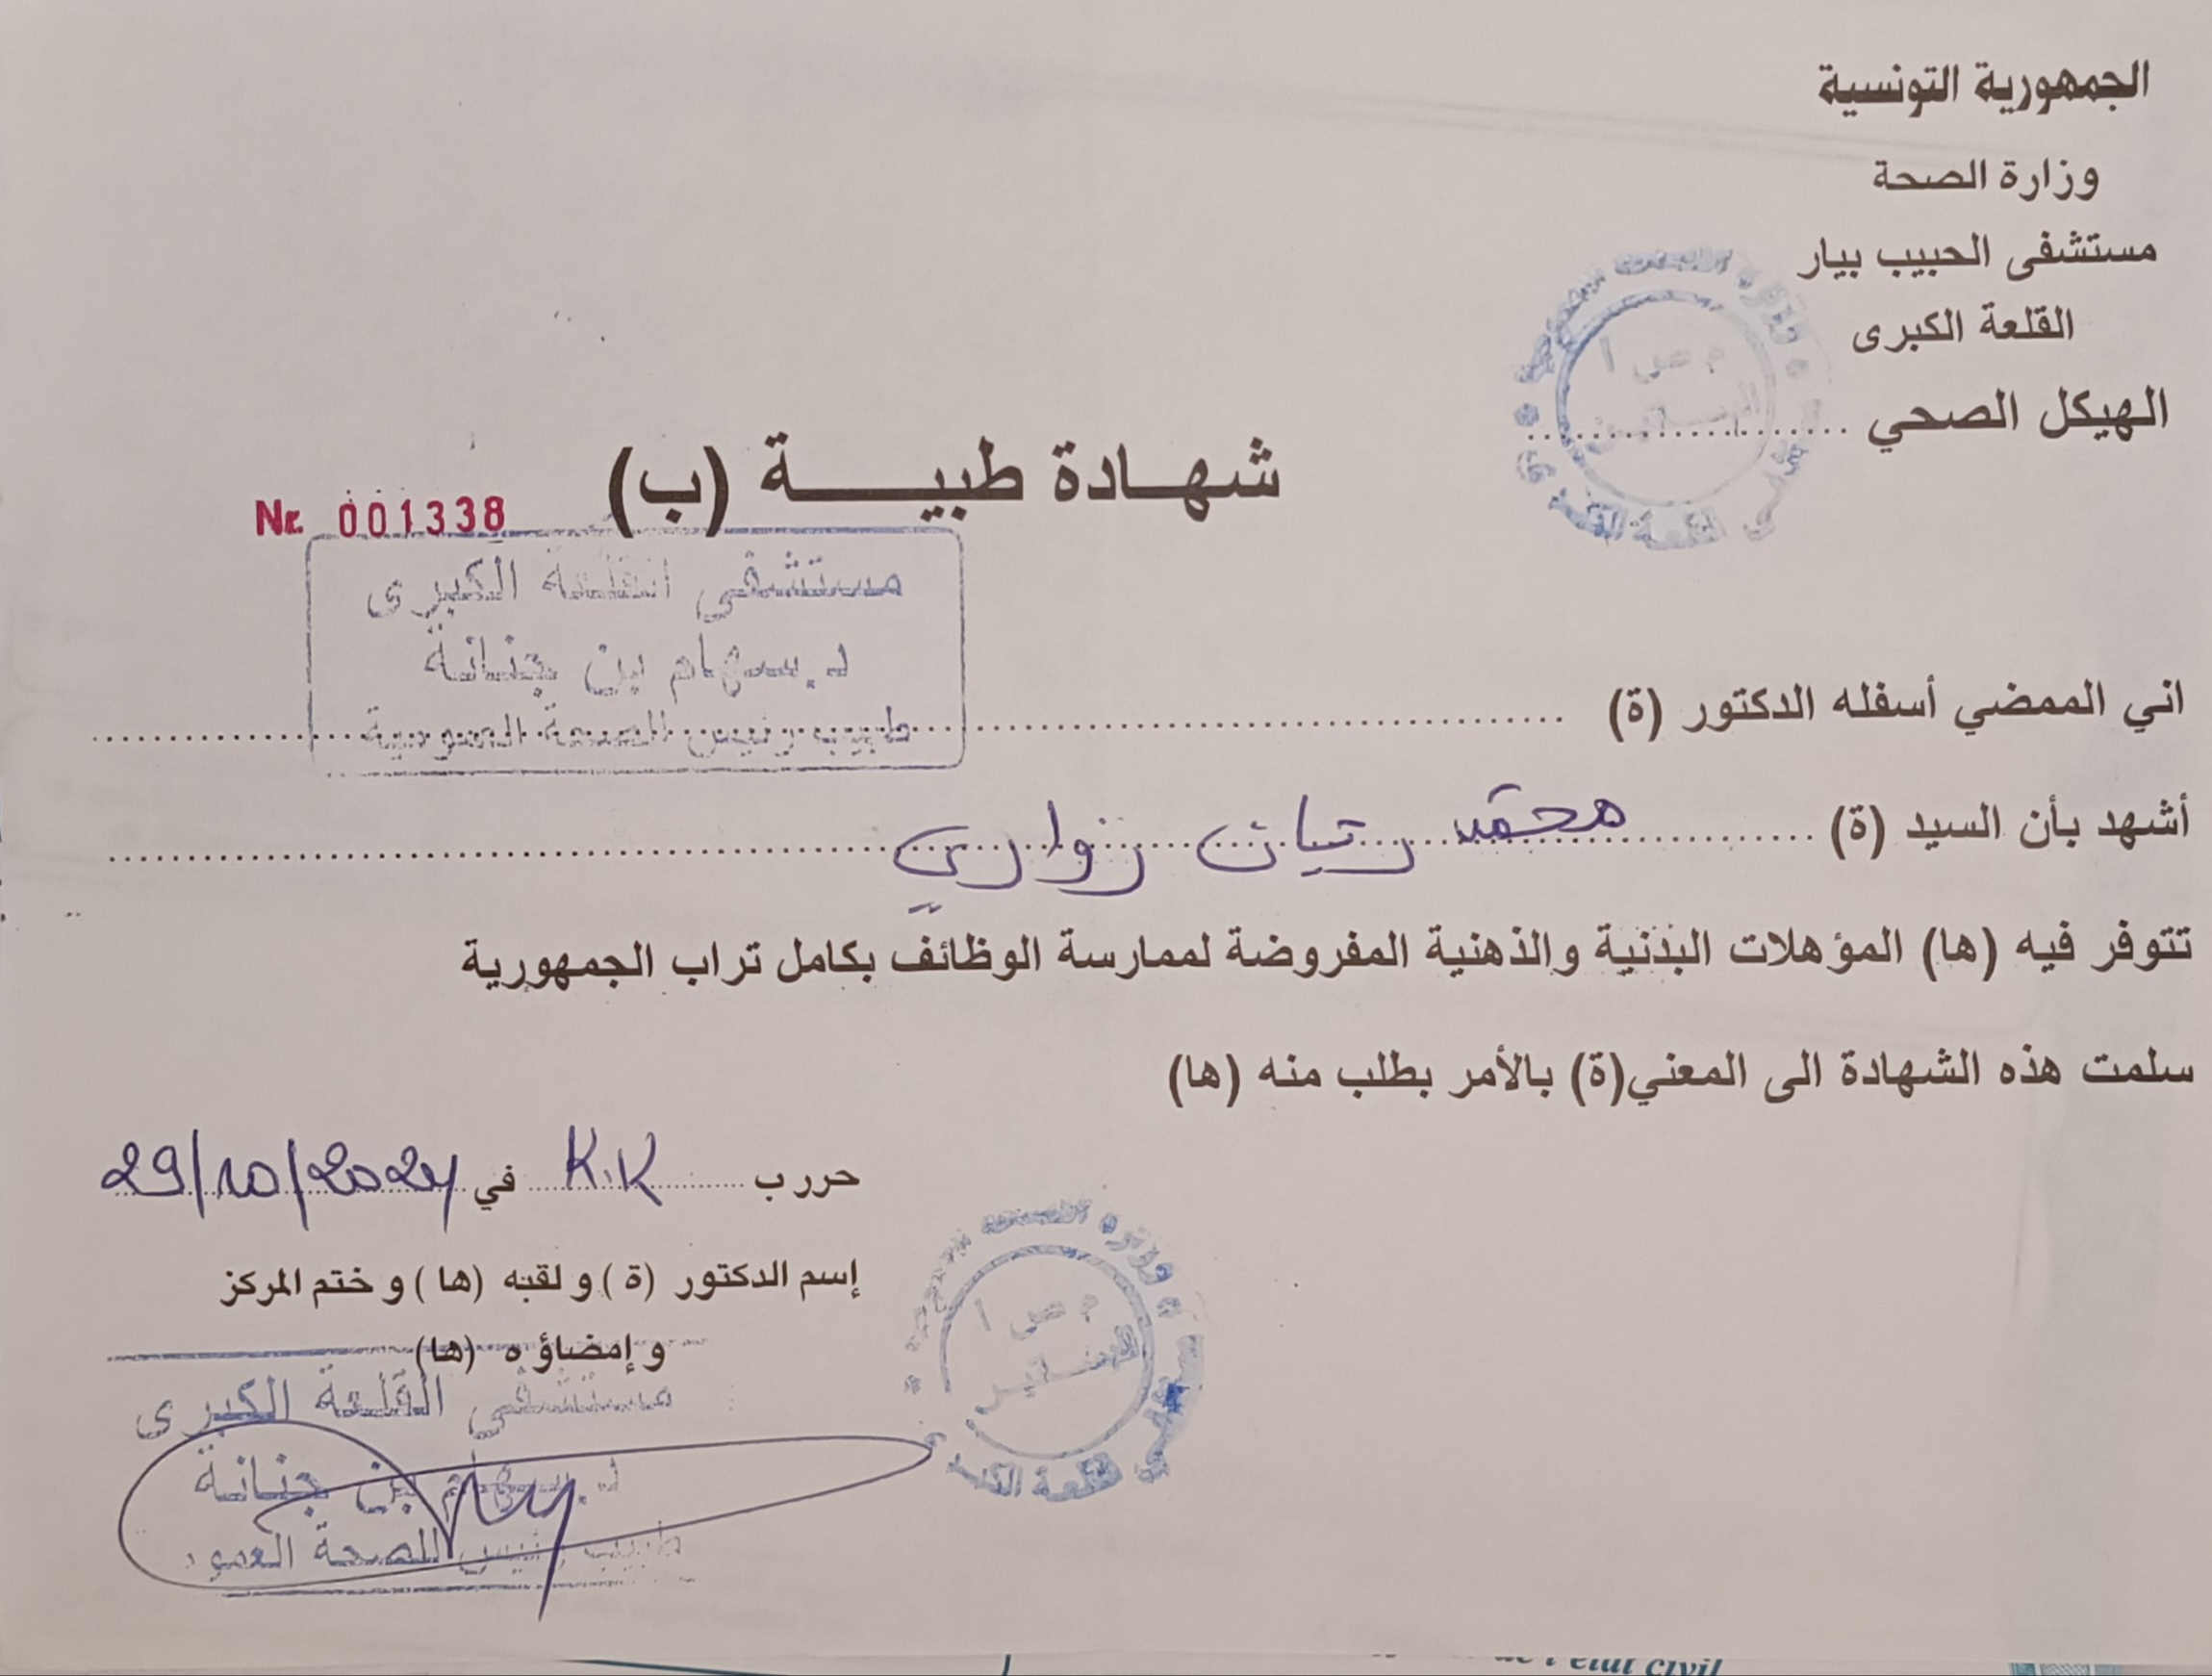 الجمهورية التونسية
وزارة الصحة
مستشفى الحبيب بيار
القلعة الكبرى
الهيكل الصحي ....................
م ص ا
شهـادة طبيـــــة (ب)
Nr. 001338
مستشفى القلعة الكبرى
د.سهام بن جنانة
طبيب رئيس للصحة العمومية
اني الممضي أسفله الدكتور (ة) ....................
أشهد بأن السيد (ة) .......... محمد ريان زواري ..........
تتوفر فيه (ها) المؤهلات البدنية والذهنية المفروضة لممارسة الوظائف بكامل تراب الجمهورية
سلمت هذه الشهادة الى المعني(ة) بالأمر بطلب منه (ها)
حرر ب K.K في 29/10/2024
إسم الدكتور (ة) و لقبه (ها) و ختم المركز
وإمضاؤ ه (ها)
م ص ا
مستشفى القلعة الكبرى
د.سهام بن جنانة
طبيب رئيس للصحة العمو
de l'état civil